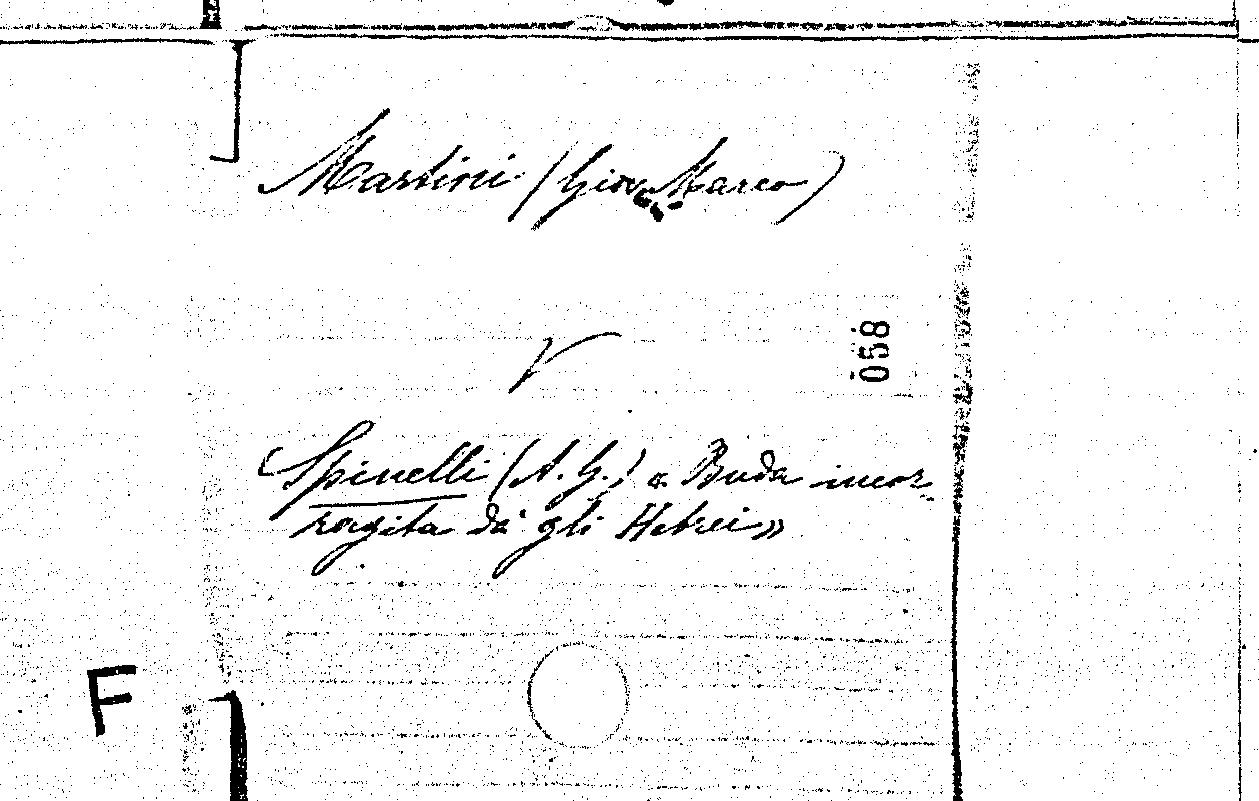 Martini (Giov. Marco)
V
058
Spinelli (A. G.) « Buda incor-
ragita da' gli Hebrei»
F